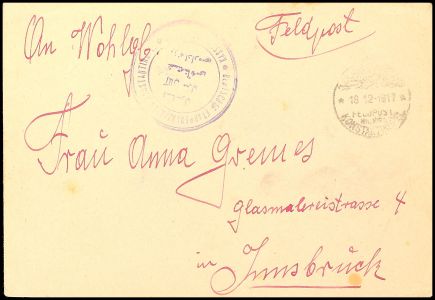 Feldpost
An Wohlgb.
18.12.1917
FELDPOST
Frau Anna Gremes
Glasmalereistrasse 4
in Innsbruck